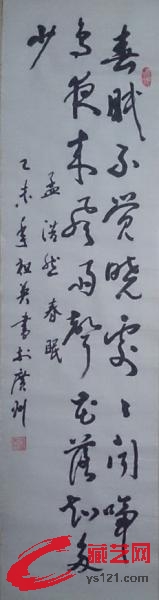 春眠不觉晓處々闻啼
鸟夜来风雨聲花落知多
少
孟浩然春眠
乙未年祖英書於廣州
藏艺网
ys121.com